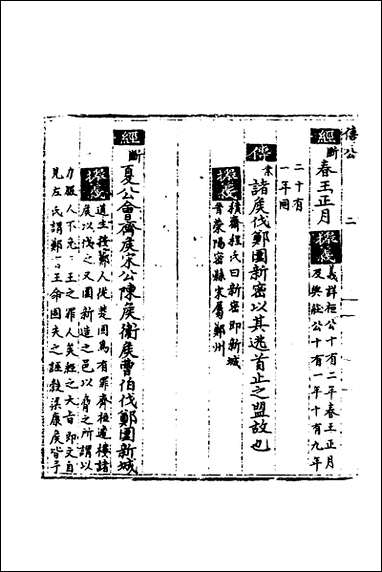 僖公 二
經 斷 春王正月 擬義 義詳桓公十有二年春王正月
及與莊公十有一年十有九年
二十有
一年同
傳 末 諸侯伐鄭圍新密以其逃首止之盟故也
擬義 積齋程氏曰新密即新城
晉滎陽密縣宋屬鄭州
經 斷 夏公會齊侯宋公陳侯衛侯曹伯伐鄭圍新城
擬義 道主 鄭人從楚固為有罪齊桓連樓諸
侯以伐之又圍新造之邑以脅之所謂以
力服人不免三王之罪人矣經之大旨即文自
見左氏謂鄭 王命圍夫之誣